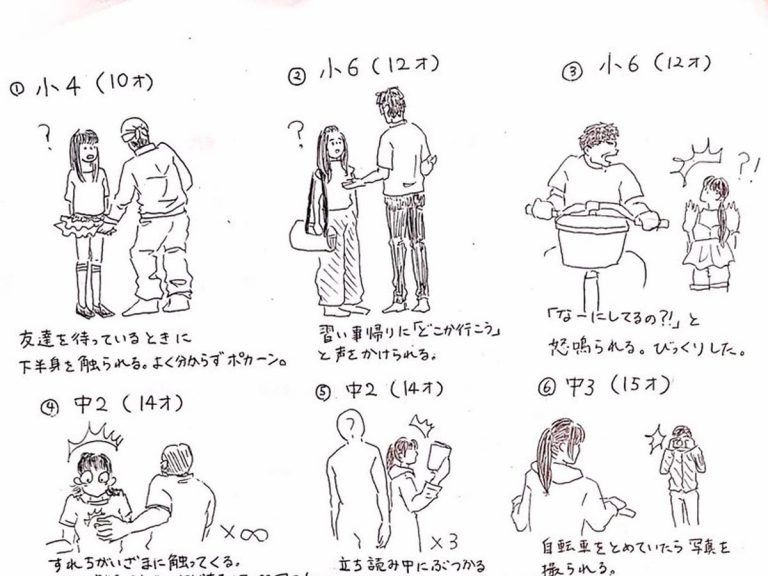 ① 小4 (10才)
② 小6 (12才)
③ 小6 (12才)
?
?
?!
友達を待っているときに
下半身を触られる。よく分からずポカーン。
習い事帰りに「どこか行こう」
と声をかけられる。
「なーにしてるの?!」と
怒鳴られる。びっくりした。
④ 中2 (14才)
⑤ 中2 (14才)
⑥ 中3 (15才)
?
×∞
×3
すれちがいざまに触ってくる。
立ち読み中にぶつかる
自転車をとめていたら写真を
撮られる。